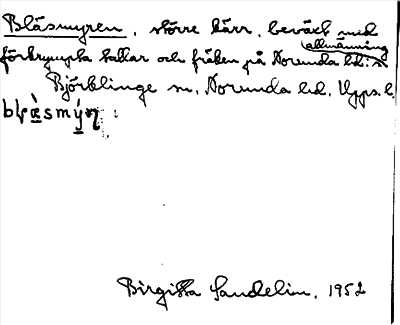 Blåsmyren, större kärr, beväxt med
förkrympta tallar och fräken på Norunda hd:s
allmänning
Björklinge sn, Norunda hd, Upps. l.
Birgitta Sandelin, 1952